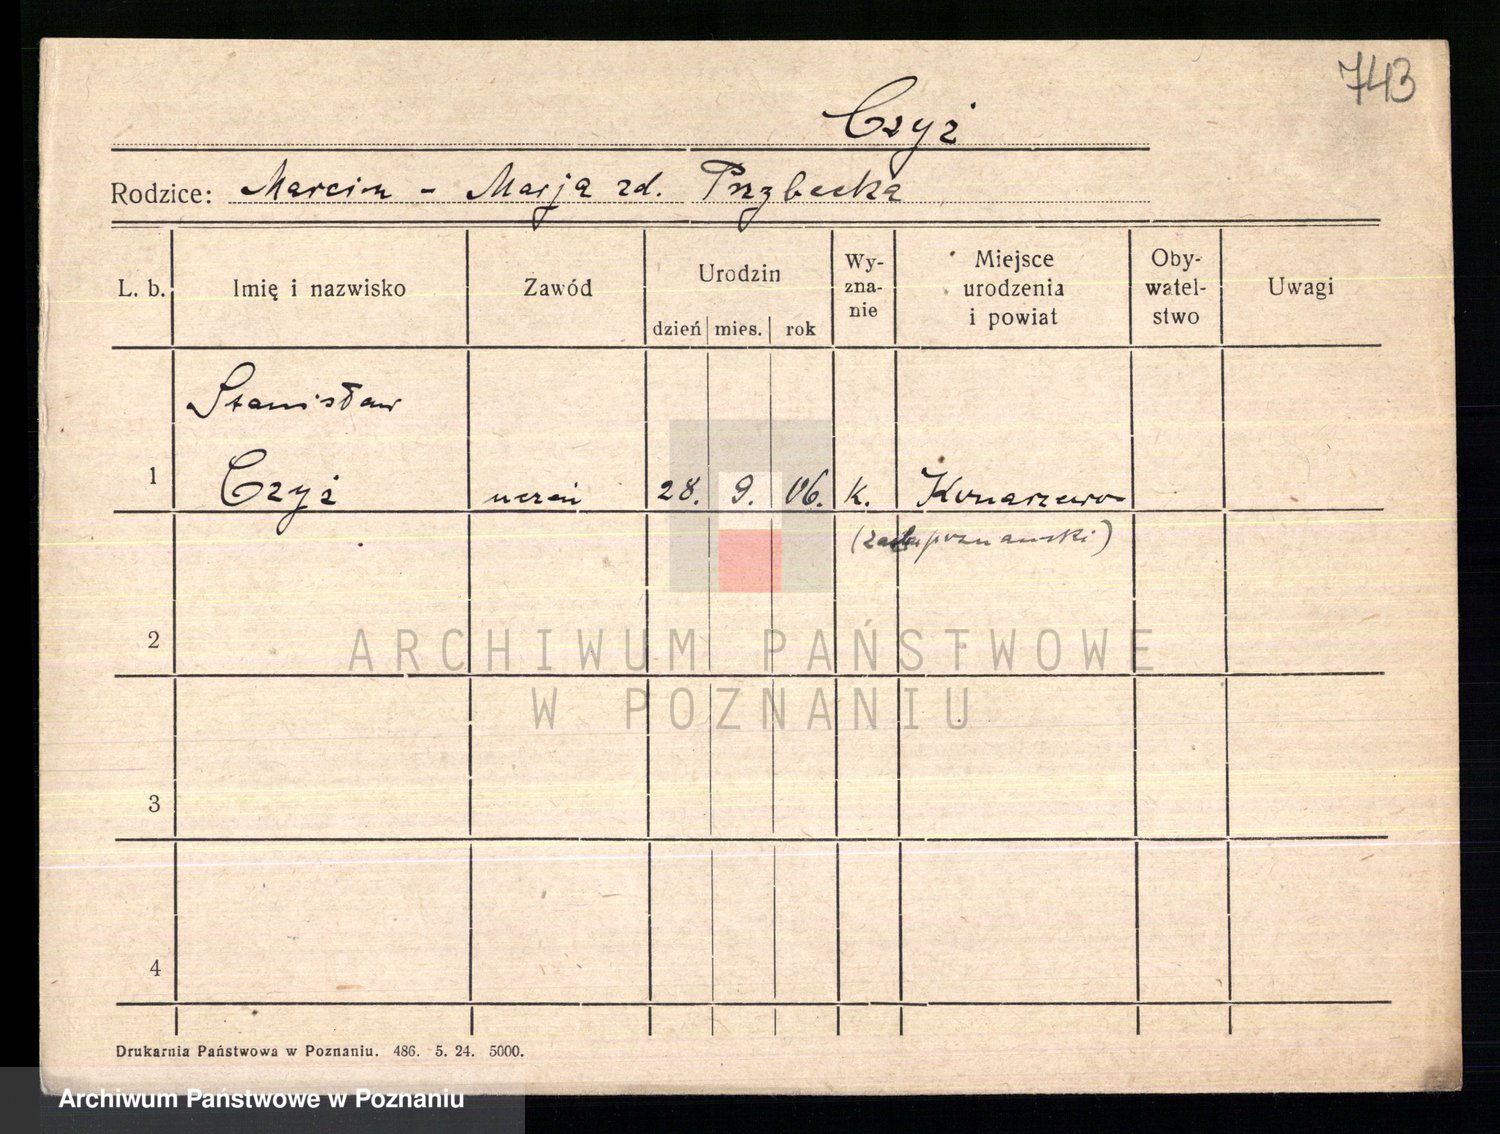 743
Czyż
Rodzice: Marcin - Marja zd. Przybecka
L. b. Imię i nazwisko Zawód Urodzin dzień mies. rok Wy- zna- nie Miejsce urodzenia i powiat Oby- watel- stwo Uwagi
Stanisław
1 Czyż uczeń 28. 9. 06. k. Konarzewo
poznański)
2
ARCHIWUM PAŃSTWOWE
W POZNANIU
3
4
Drukarnia Państwowa w Poznaniu. 486. 5. 24. 5000.
Archiwum Państwowe w Poznaniu